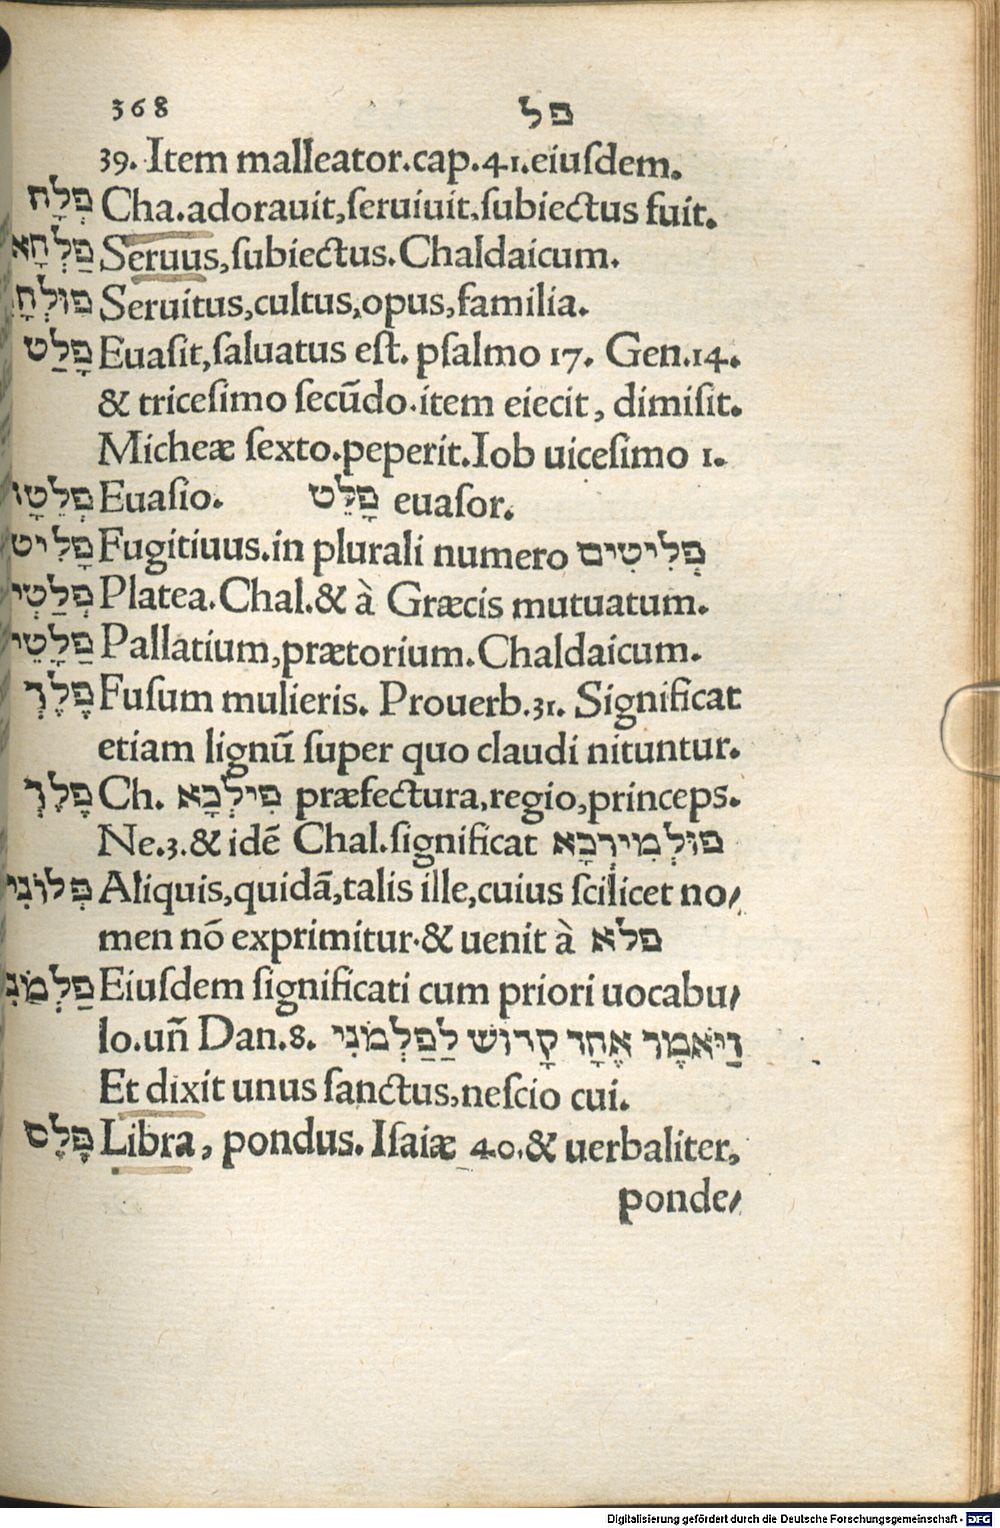 368 פל
39. Item malleator.cap.41.eiuſdem.
פְלָח Cha.adorauit,ſeruiuit,ſubiectus fuit.
פַלְחָא Seruus,ſubiectus.Chaldaicum.
פוּלְחָ Seruitus,cultus,opus,familia.
פָלַט Euaſit,ſaluatus eſt. pſalmo 17. Gen.14.
& triceſimo ſecūdo.item eiecit, dimiſit.
Micheæ ſexto.peperit.Iob uiceſimo 1.
פְלֵטָו Euaſio. פָלֵט euaſor.
פָלִיט Fugitiuus.in plurali numero פְלִיטִים
פְלַטְי Platea.Chal.& à Græcis mutuatum.
פַלָטֵי Pallatium,prætorium.Chaldaicum.
פֶלֶךְ Fuſum mulieris. Prouerb.31. Significat
etiam lignū ſuper quo claudi nituntur.
פֶלֶךְ Ch. פִילְכָא præfectura,regio,princeps.
Ne.3.& idē Chal.ſignificat פוּלְמִירְכָא
פְלוֹנִי Aliquis,quidā,talis ille,cuius ſcilicet no/
men nō exprimitur.& uenit à פלא
פַלְמֹנִ Eiuſdem ſignificati cum priori uocabu/
lo.uñ Dan.8. וַיֹאמֶר אֶחָד קָדוֹשׁ לַפַלְמֹנִי
Et dixit unus ſanctus,neſcio cui.
פֶלֶס Libra, pondus. Iſaiæ 40.& uerbaliter,
ponde/
Digitalisierung gefördert durch die Deutsche Forschungsgemeinschaft - DFG